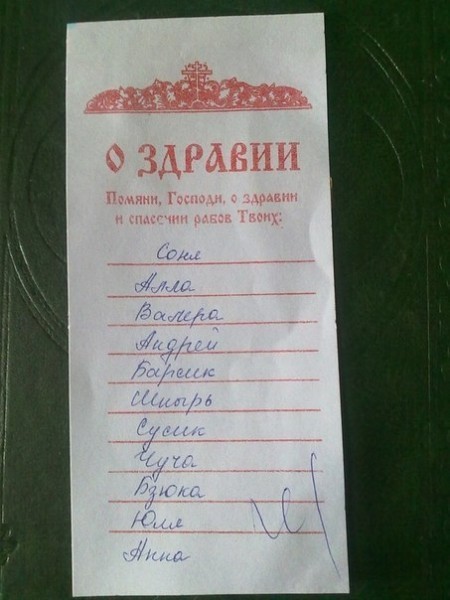 О ЗДРАВИИ
Помяни, Господи, о здравии
и спасении рабов Твоих:
Соня
Алла
Валера
Андрей
Барсик
Шнырь
Сусик
Чуча
Бзюка
Юля
Анна